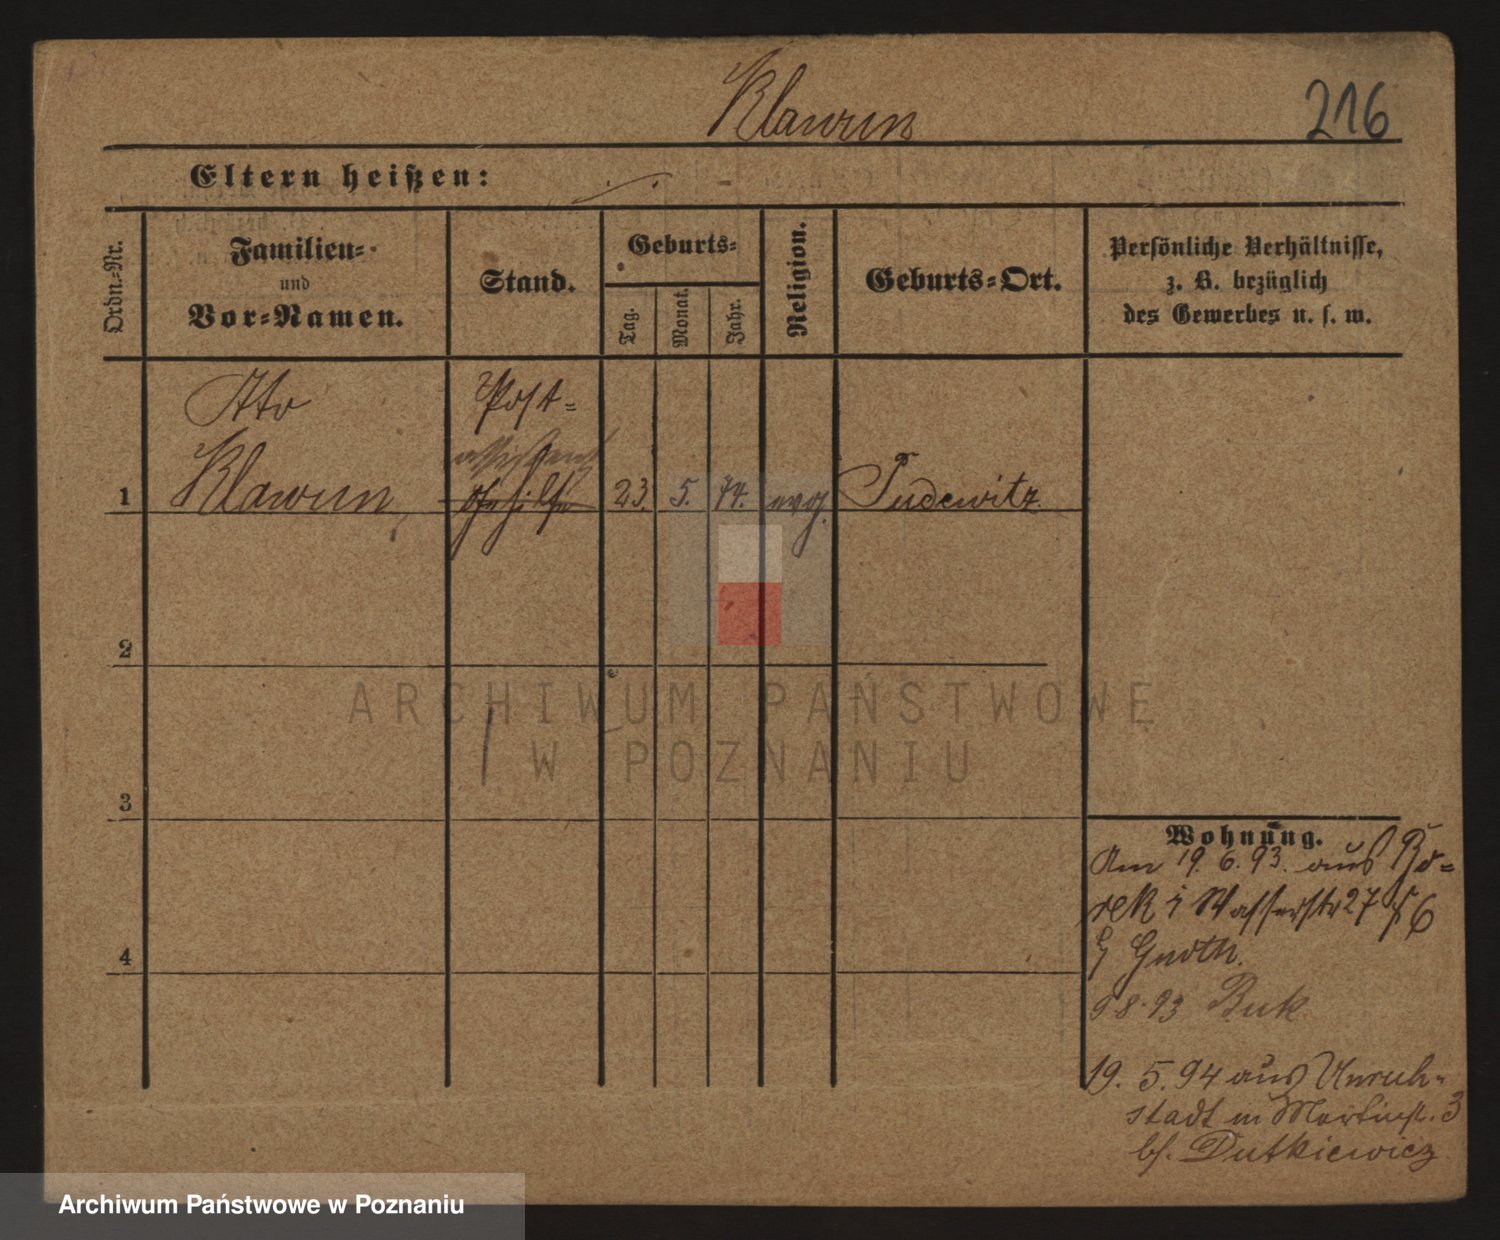 Klawun
216
Eltern heißen:
Ordn.-Nr.
Familien-
und
Vor-Namen.
Stand.
Geburts-
Tag.
Monat.
Jahr.
Religion.
Geburts-Ort.
Persönliche Verhältnisse,
z. B. bezüglich
des Gewerbes u. s. w.
Otto
Klawun
Post-
assistent
gehilfe
1
23.
5.
74.
evg.
Pudewitz.
2
3
4
ARCHIWUM PAŃSTWOWE
W POZNANIU
Wohnung.
Am 19. 6. 93. aus Bo-
rek i Wasserstr 27 6
Gnoth.
9 8. 93 Buk
19. 5. 94 aus Unruh-
stadt in Martinst. 3
bs. Dutkiewicz
Archiwum Państwowe w Poznaniu